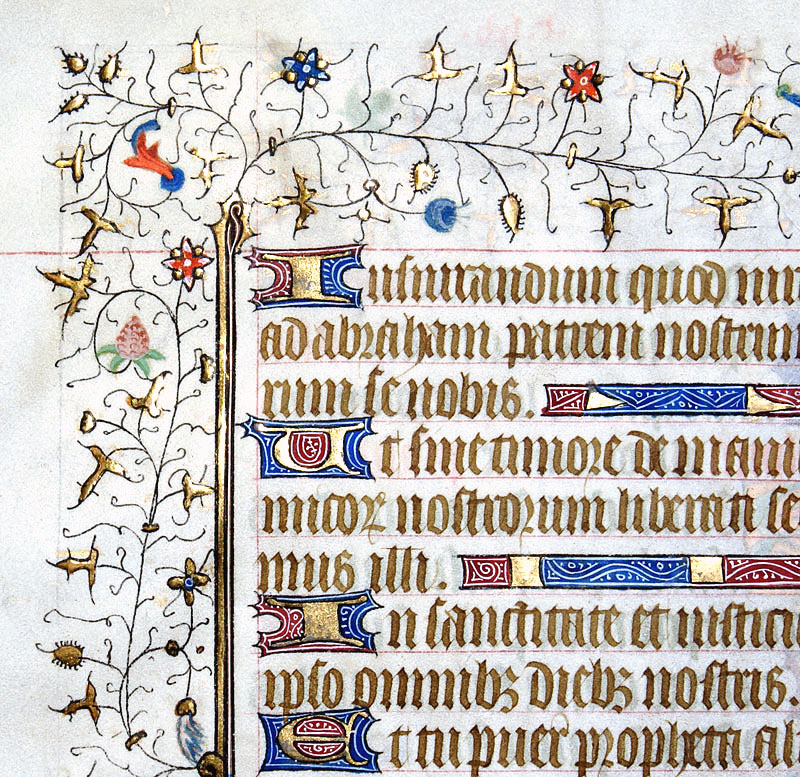 Iusiurandum quod iur
ad abraham patrem nostrum
rum se nobis.
Ut sine timore de manu
micoꝝ nostrorum liberati se
mus illi.
In sanctitate et iustici
ipso omnibꝫ diebꝫ nostris.
Et tu puer propheta al